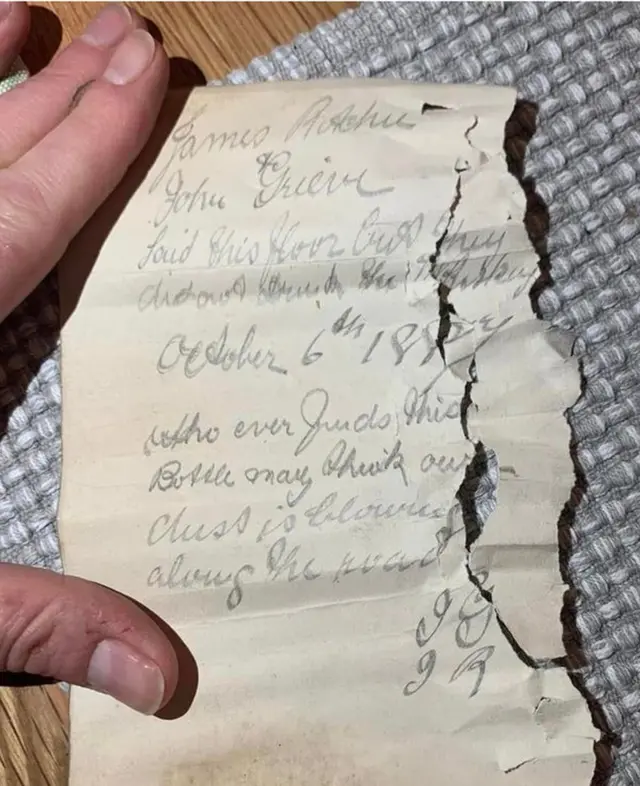 James Ritchie
& John Grieve
laid this floor but they
did not drink the Whiskey
October 6th 1887
Who ever finds this
Bottle may think our
dust is blowing
along the road
J G
J R